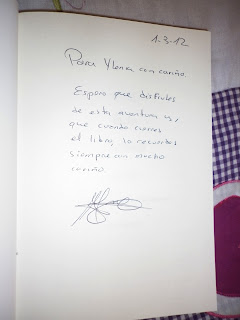 1-3-12
Para Ylenia con cariño
Espero que disfrutes
de esta aventura y,
que cuando cierres
el libro, lo recuerdes
siempre con mucho
cariño.